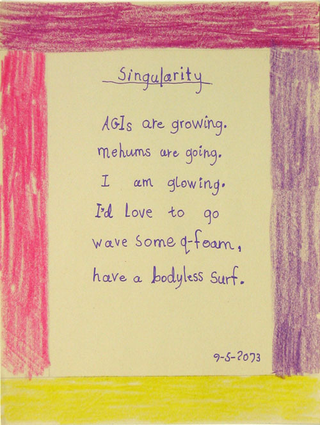 Singularity
AGIs are growing.
mehums are going.
I am glowing.
I'd Love to go
wave some q-foam,
have a bodyless surf.
9-5-2073